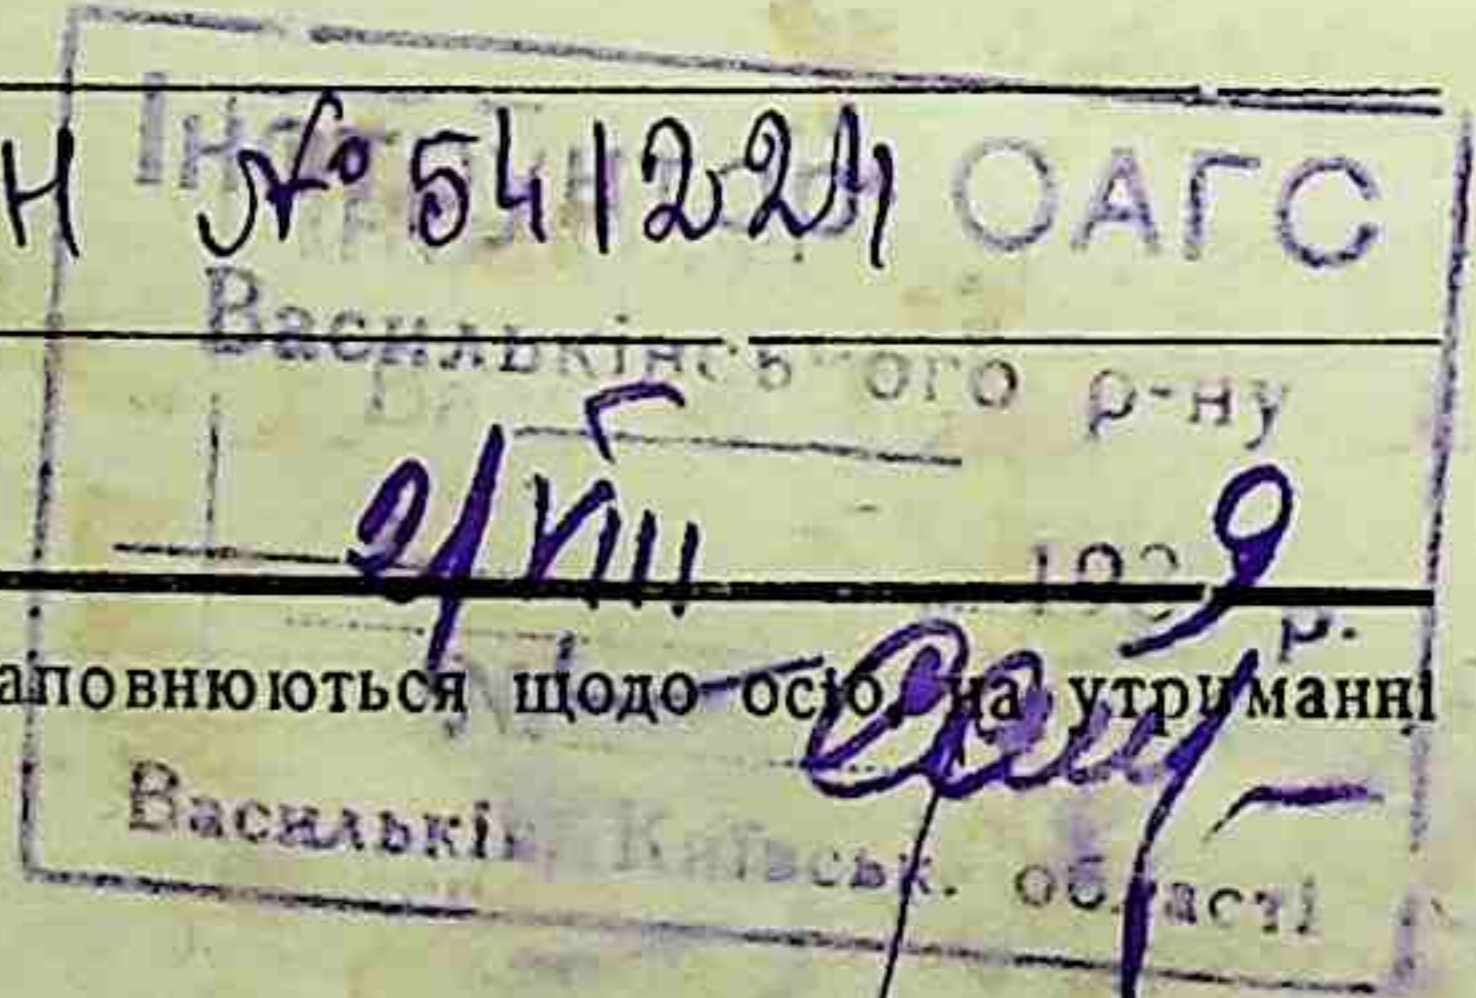 Н № 541224 ОАГС
Васильківського р-ну
21/VIII 1939 р.
аповнюються щодо осіб, на утриманні
Васильків, Київськ. області